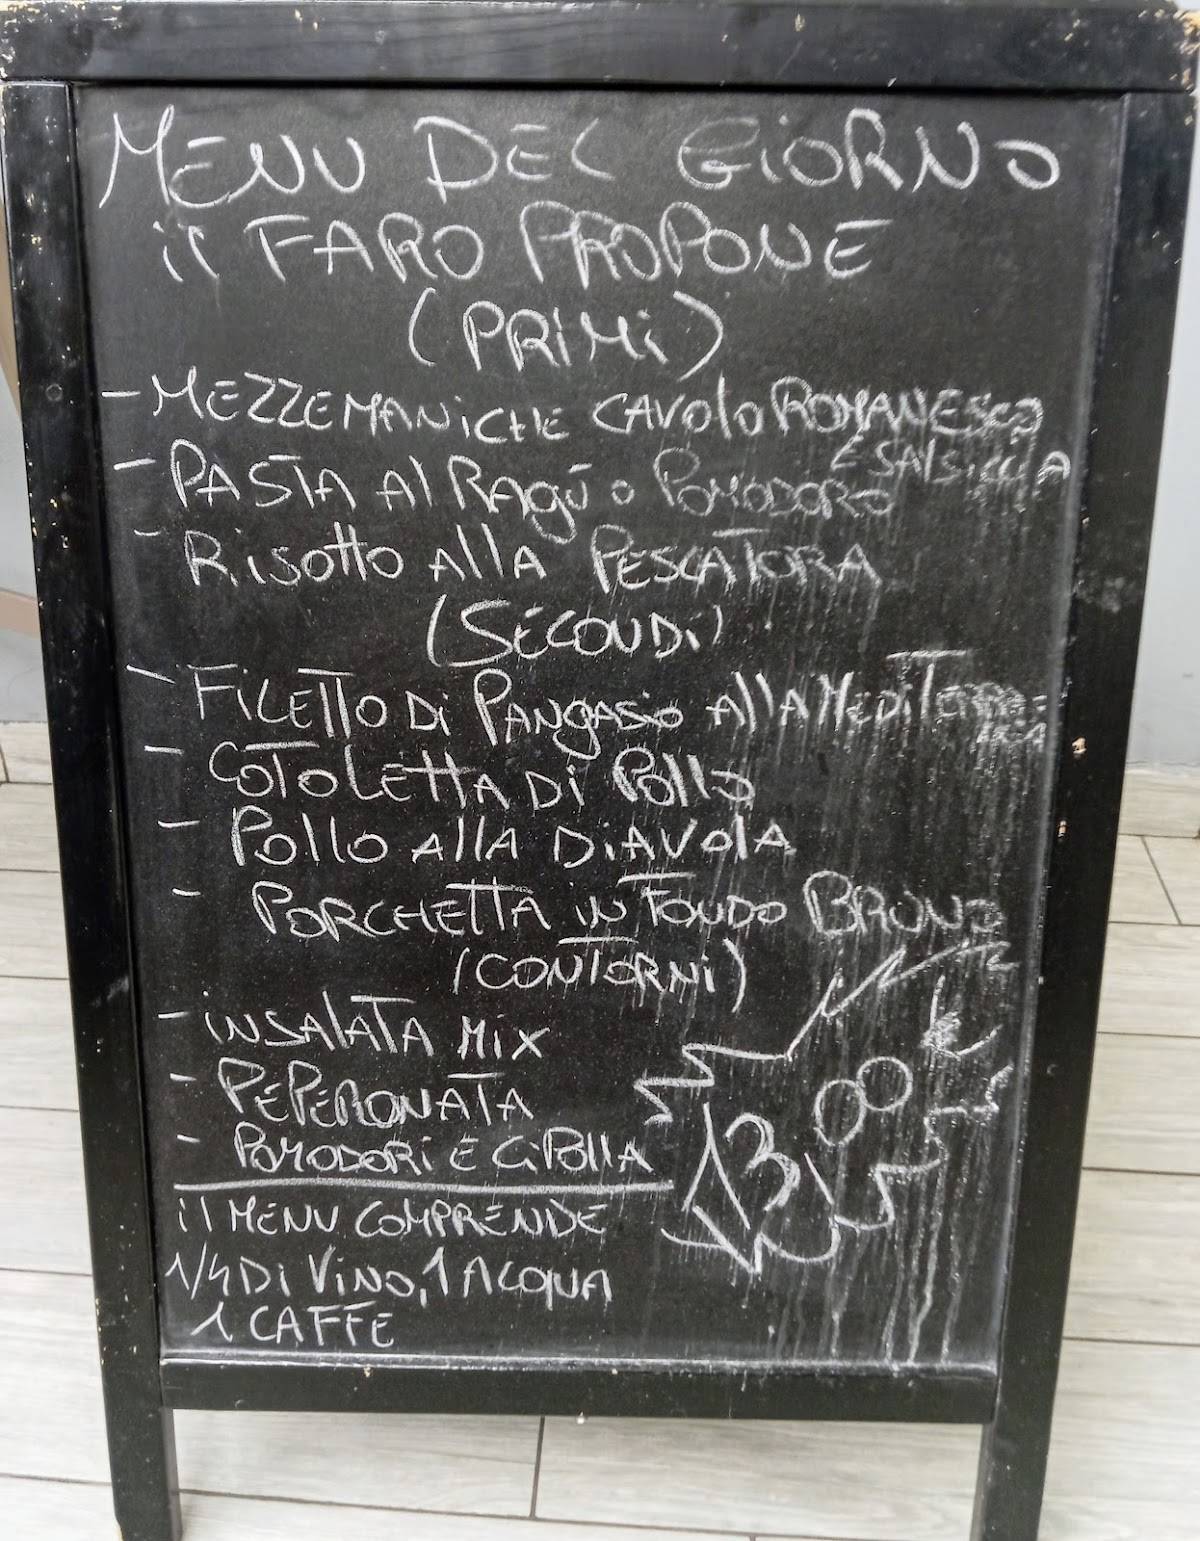 MENU DEL GIORNO
il FARO PROPONE
(PRIMI)
- MEZZEMANICHE CAVOLO ROMANESCO
E SALSICCIA
- PASTA Al RAGÙ o POMODORO
- RISOTTO AllA PESCATORA
(SECONDI)
- FILETTO DI PANGASIO AllA MEDITERRANEA
- COTOLETTA DI POLLO
- POLLO AllA DIAVOLA
- PORCHETTA IN FONDO BRUNO
(CONTORNI)
- INSALATA MIX
- PEPERONATA
- POMODORI E CIPOLLA
13,00 €
il MENU COMPRENDE
1/4 DI VINO, 1 ACQUA
1 CAFFE